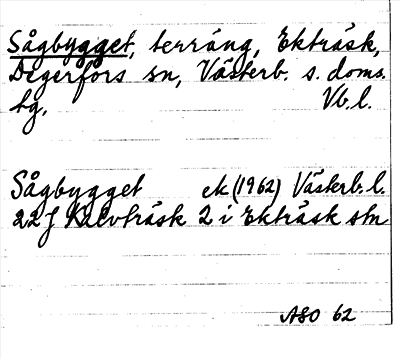 Sågbygget, terräng, Ekträsk,
Degerfors sn, Västerb. s. doms.
tg. Vb. l.
Sågbygget ek (1962) Västerb. l.
22 f Kalvträsk 2 i Ekträsk sln
ASO 62